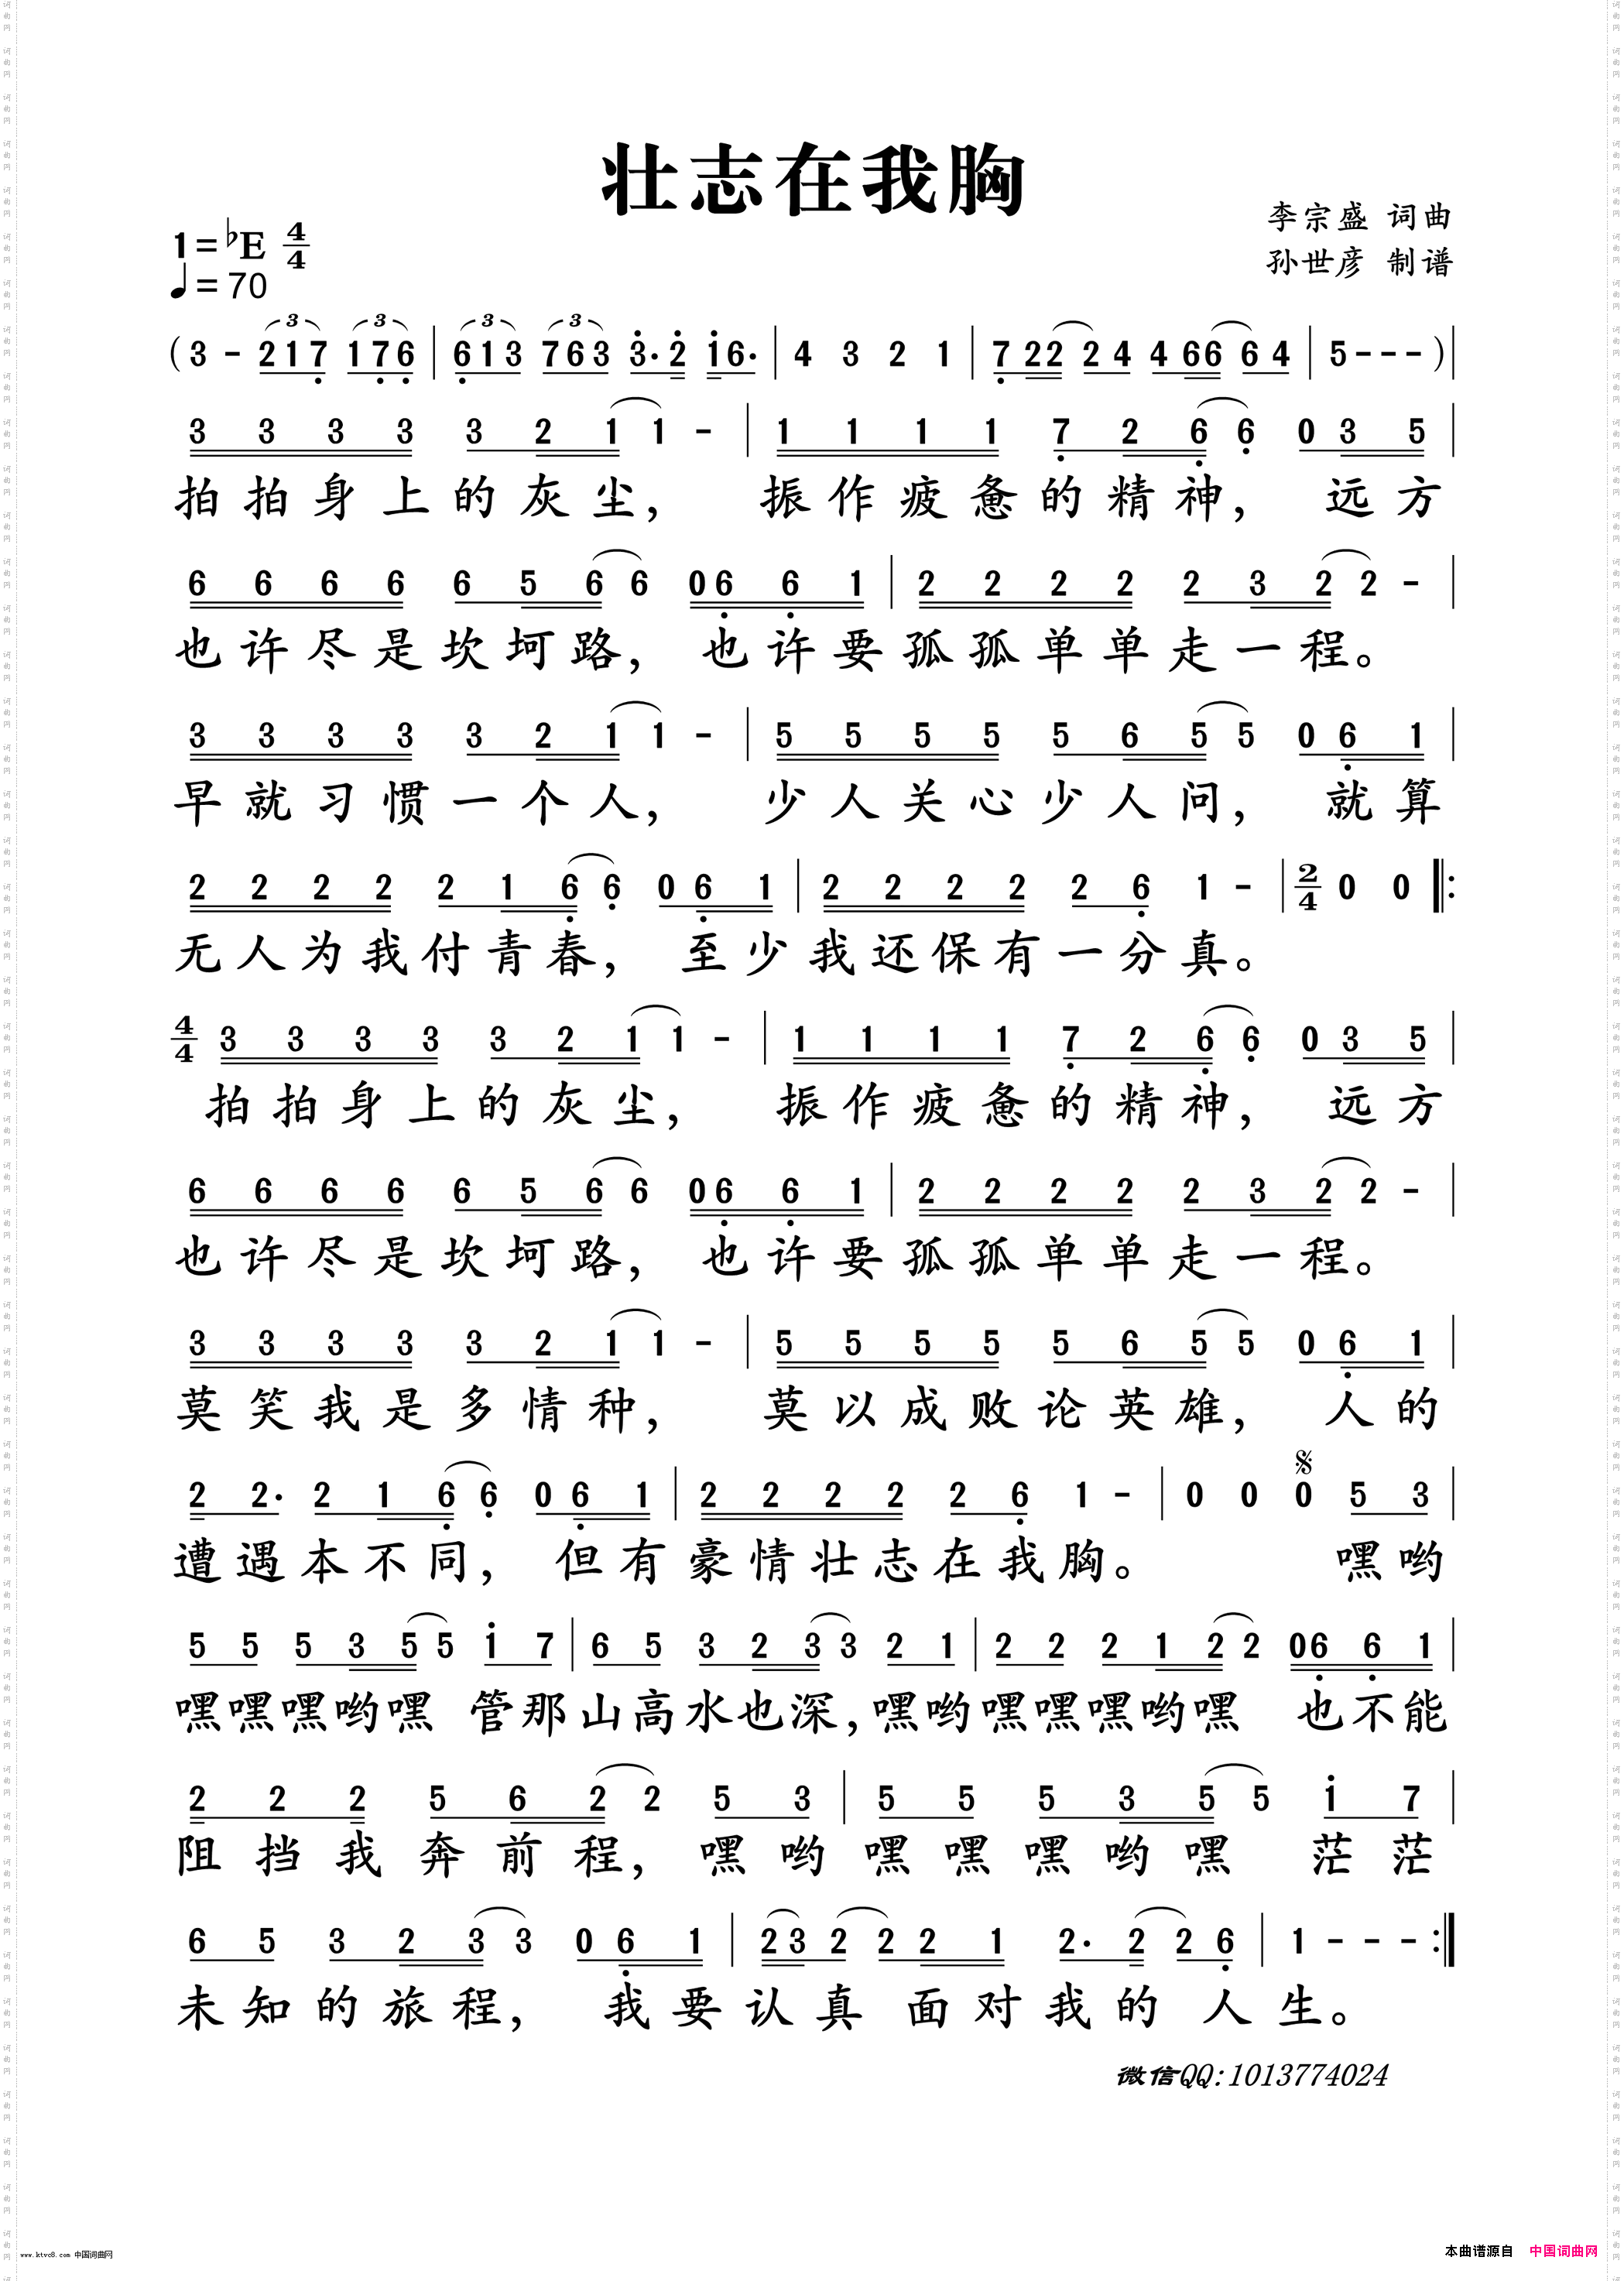 壮志在我胸
李宗盛 词曲
1=♭E 4/4
孙世彦 制谱
♩=70
( 3 - 2 1 7 1 7 6 | 6 1 3 7 6 3 3· 2 1 6· | 4 3 2 1 | 7 2 2 2 4 4 6 6 6 4 | 5 - - - ) |
3 3 3 3 3 2 1 1 - | 1 1 1 1 7 2 6 6 0 3 5 |
拍拍身上的灰尘, 振作疲惫的精神, 远方
6 6 6 6 6 5 6 6 0 6 6 1 | 2 2 2 2 2 3 2 2 - |
也许尽是坎坷路, 也许要孤孤单单走一程。
3 3 3 3 3 2 1 1 - | 5 5 5 5 5 6 5 5 0 6 1 |
早就习惯一个人, 少人关心少人问, 就算
2 2 2 2 2 1 6 6 0 6 1 | 2 2 2 2 2 6 1 - | 2/4 0 0 ‖:
无人为我付青春, 至少我还保有一分真。
4/4 3 3 3 3 3 2 1 1 - | 1 1 1 1 7 2 6 6 0 3 5 |
拍拍身上的灰尘, 振作疲惫的精神, 远方
6 6 6 6 6 5 6 6 0 6 6 1 | 2 2 2 2 2 3 2 2 - |
也许尽是坎坷路, 也许要孤孤单单走一程。
3 3 3 3 3 2 1 1 - | 5 5 5 5 5 6 5 5 0 6 1 |
莫笑我是多情种, 莫以成败论英雄, 人的
2 2· 2 1 6 6 0 6 1 | 2 2 2 2 2 6 1 - | 0 0 0 5 3 |
遭遇本不同, 但有豪情壮志在我胸。 嘿哟
5 5 5 3 5 5 1 7 | 6 5 3 2 3 3 2 1 | 2 2 2 1 2 2 0 6 6 1 |
嘿嘿嘿哟嘿 管那山高水也深,嘿哟嘿嘿嘿哟嘿 也不能
2 2 2 5 6 2 2 5 3 | 5 5 5 3 5 5 1 7 |
阻挡我奔前程, 嘿哟嘿嘿嘿哟嘿 茫茫
6 5 3 2 3 3 0 6 1 | 2 3 2 2 2 1 2· 2 2 6 | 1 - - - :‖
未知的旅程, 我要认真面对我的人生。
微信QQ:1013774024
www.ktvc8.com 中国词曲网
本曲谱源自 中国词曲网